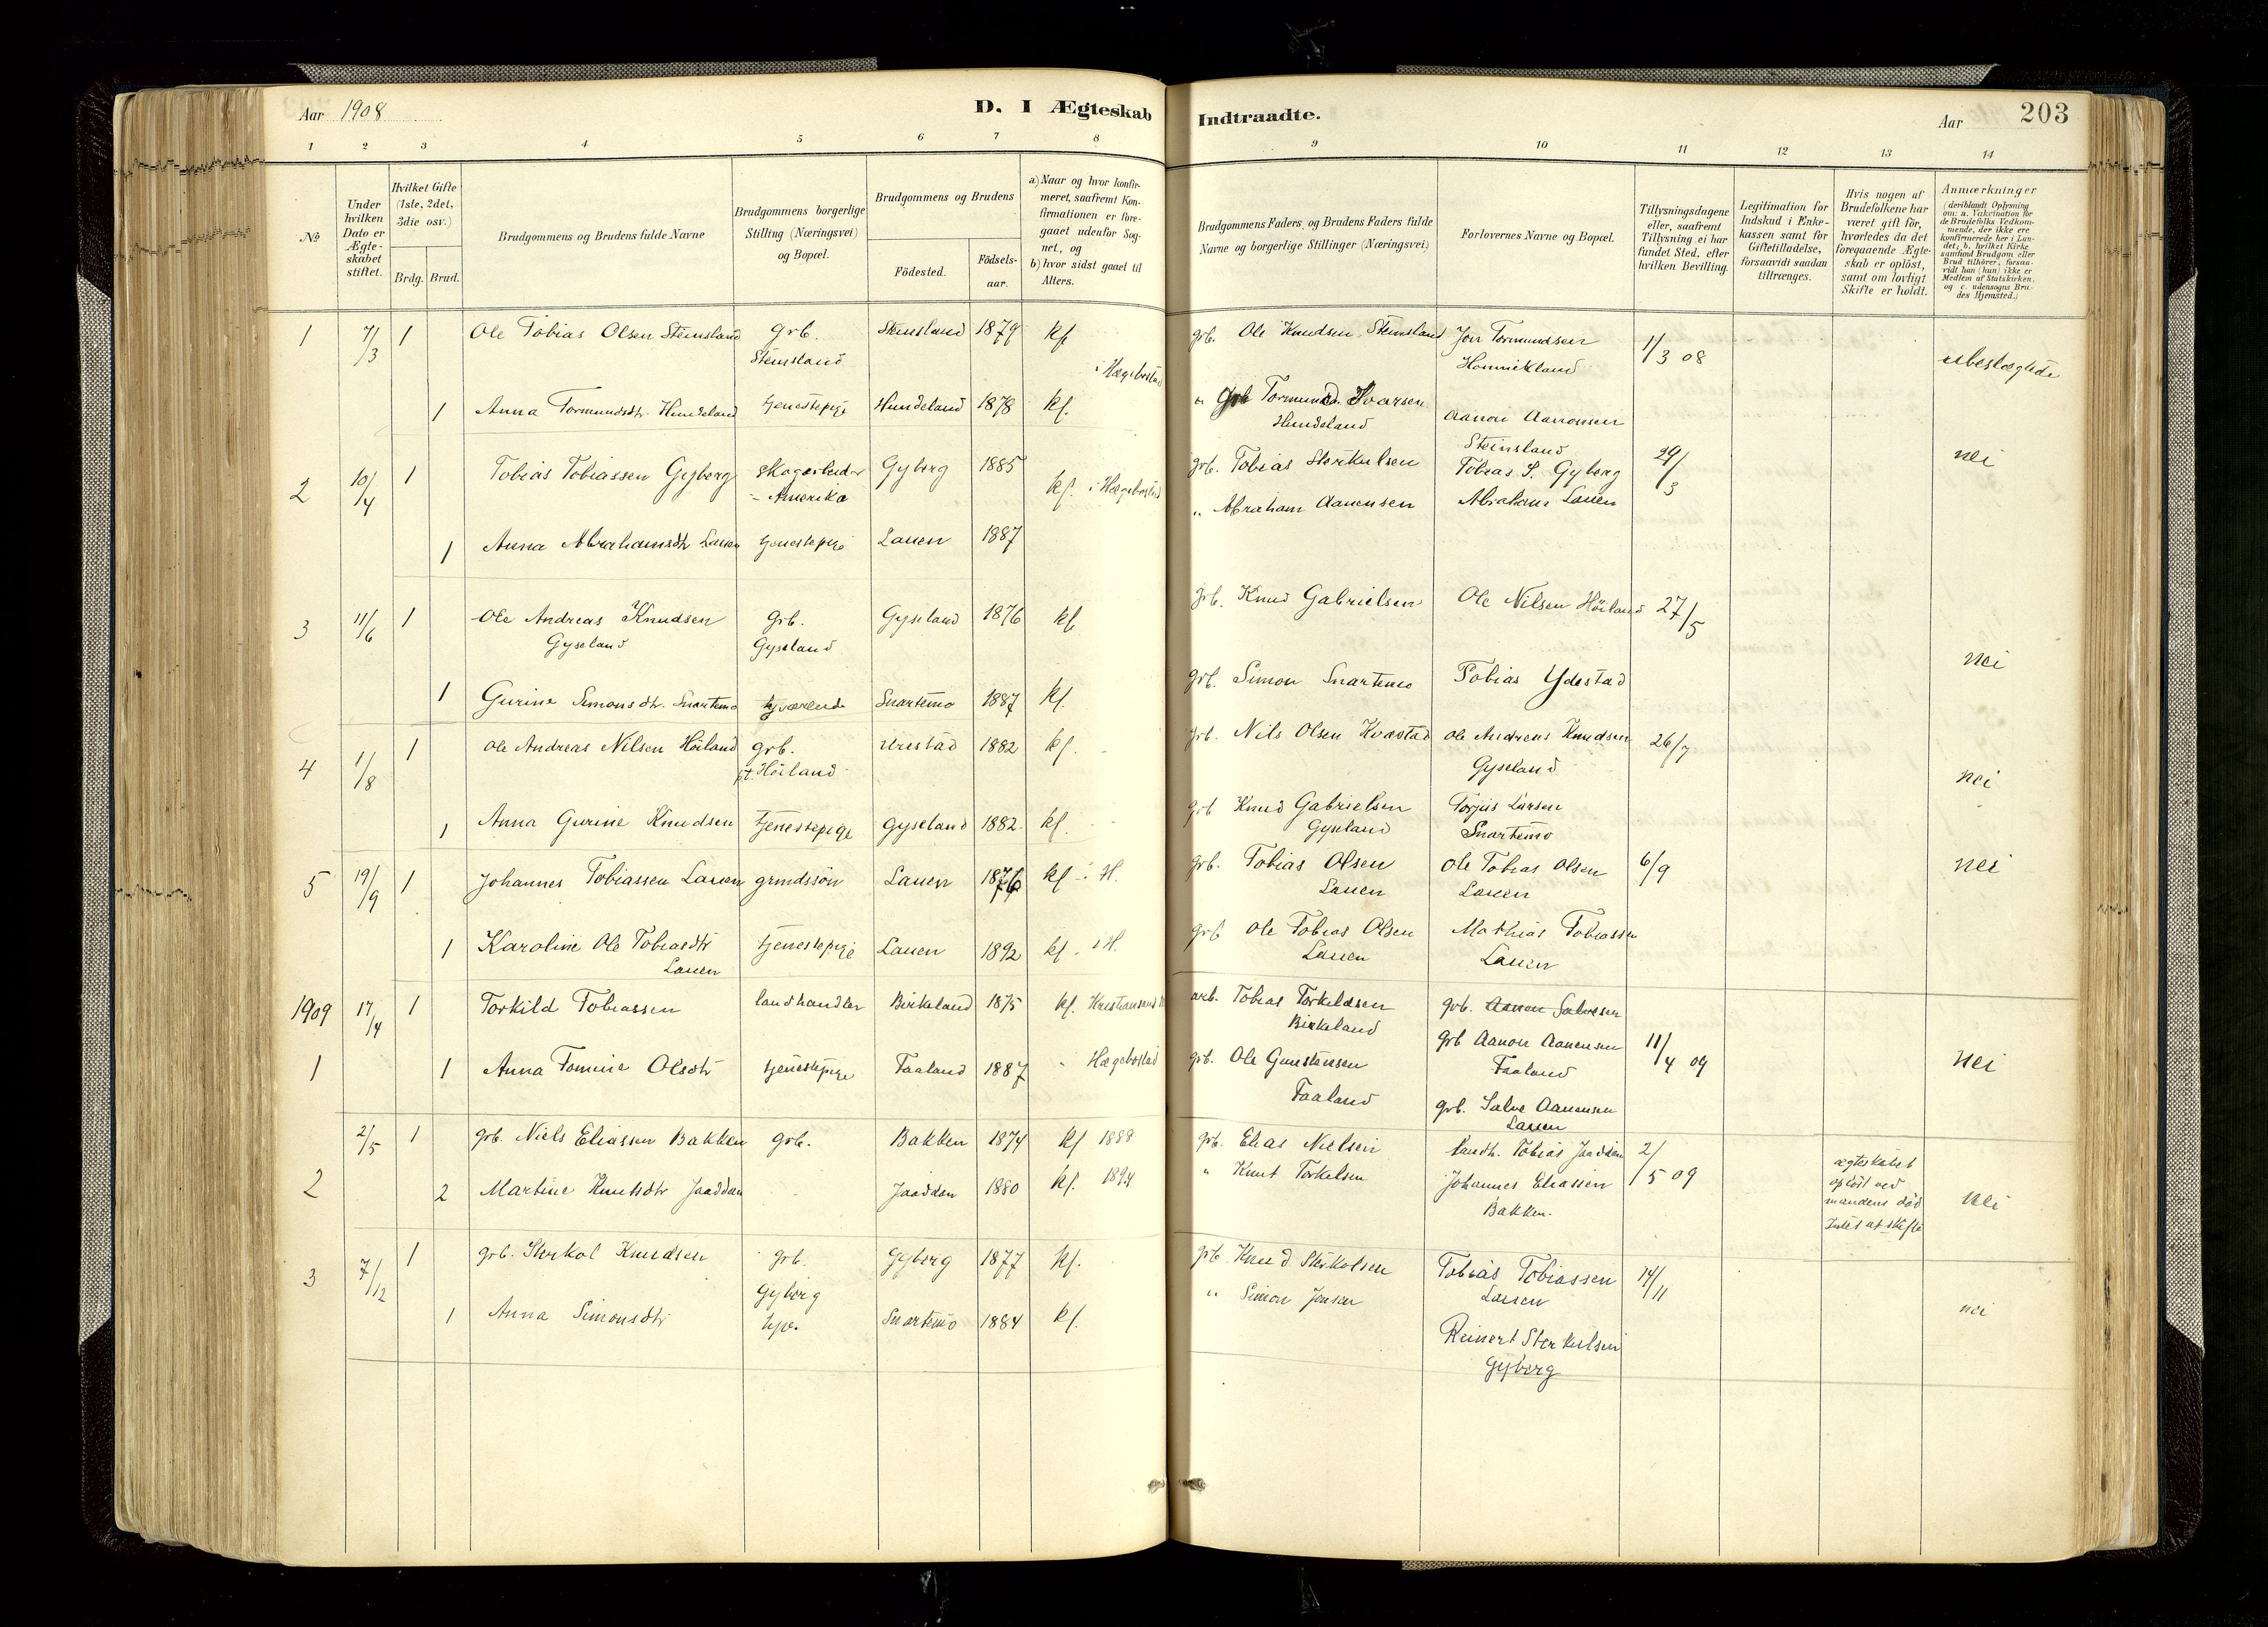 Aar 1908
D. I Ægteskab Indtraadte.
Aar
203
1 2 3 4 5 6 7 8 9 10 11 12 13 14
No
Under hvilken Dato er Ægteskabet stiftet.
Hvilket Gifte (1ste, 2det, 3die osv.)
Brdg. Brud.
Brudgommens og Brudens fulde Navne
Brudgommens borgerlige Stilling (Næringsvei) og Bopæl.
Brudgommens og Brudens
Födested.
Födsels-aar.
a) Naar og hvor konfirmeret, saafremt Konfirmationen er foregaaet udenfor Sognet, og
b) hvor sidst gaaet til Alters.
Brudgommens Faders og Brudens Faders fulde Navne og borgerlige Stillinger (Næringsvei)
Forlovernes Navne og Bopæl.
Tillysningsdagene eller, saafremt Tillysning ei har fundet Sted, efter hvilken Bevilling.
Legitimation for Indskud i Enkekassen samt for Giftetilladelse, forsaavidt saadan tiltrænges.
Hvis nogen af Brudefolkene har været gift för, hvorledes da det foregaaende Ægteskab er oplöst, samt om lovligt Skifte er holdt.
Anmærkninger (deriblandt Oplysning om: a. Vakcination for de Brudefolks Vedkommende, der ikke ere konfirmerede her i Landet; b. hvilket Kirkesamfund Brudgom eller Brud tilhörer, forsaavidt han (hun) ikke er Medlem af Statskirken, og c. udensogns Brudes Hjemsted.)
1 7/3 1 Ole Tobias Olsen Steinsland grb. Steinsland 1879 kf. grb. Ole Knudsen Steinsland Jon Tormundsen 1/3 08
Steinsland i Hægebostad Hommekland ubeslægtede
1 Anna Tormundsdtr. Hundeland tjenestepige Hundeland 1878 kf. " grb Tormund Ivarsen Aanon Aanonsen
Hundeland Steinsland
2 10/4 1 Tobias Tobiassen Gyberg skogarbeider Gyberg 1885 kf. i Hægebostad grb. Tobias Sterkulsen Tobias S. Gyberg 29/3 nei
- Amerika " Abraham Aanensen Abraham Lauen
1 Anna Abrahamsdtr Lauen tjenestepige Lauen 1887
3 11/6 1 Ole Andreas Knudsen grb. Gyseland 1876 kf. grb. Knud Gabrielsen Ole Nilsen Höiland 27/5
Gyseland Gyseland nei
1 Gurine Simonsdtr. Snartemo Snartemo 1887 kf. grb. Simon Snartemo Tobias Ydestad
4 1/8 1 Ole Andreas Nilsen Höiland grb. Urestad 1882 kf. grb. Nils Olsen Kvavstad Ole Andreas Knudsen 26/7
pt. Höiland Gyseland nei
1 Anna Gurine Knudsen tjenestepige Gyseland 1882 kf. grb Knud Gabrielsen Torjus Larsen
Gyseland Snartemo
5 19/9 1 Johannes Tobiassen Lauen grmdssön Lauen 1876 kf - i H. grb. Tobias Olsen Ole Tobias Olsen 6/9 nei
Lauen Lauen
1 Karoline Ole Tobiasdtr tjenestepige Lauen 1892 kf - i H. grb Ole Tobias Olsen Mathias Tobiassen
Lauen Lauen Lauen
1909 17/4 1 Torkild Tobiassen landhandler Birkeland 1875 kf. Kristiansand arb. Tobias Torkildsen grb. Aanen Salvesen
Birkeland grb Aanon Aanensen 11/4 09
1 1 Anna Tomine Olsdtr tjenestepige Faaland 1887 - Hægebostad grb. Ole Gunstensen Faaland nei
Faaland grb. Salve Aanensen
Lauen
2 2/5 1 grb. Niels Eliassen Bakken grb. Bakken 1874 kf 1888 grb. Elias Nielsen landh. Tobias Jaadden 2/5 09 ægteskabet
2 Martine Knutsdtr Jaadden Jaadden 1880 kf. 1894 " Knut Torkelsen Johannes Eliassen oplöst ved
Bakken. mandens död nei
Intet at skifte
3 7/12 1 grb. Sterkol Knudsen grb. Gyberg 1877 kf. grb. Knud Sterkolsen Tobias Tobiassen 14/11
Gyberg Lauen
1 Anna Simonsdtr Snartemo 1884 kf. " Simon Jensen nei
Reinert Sterkulsen
Gyberg